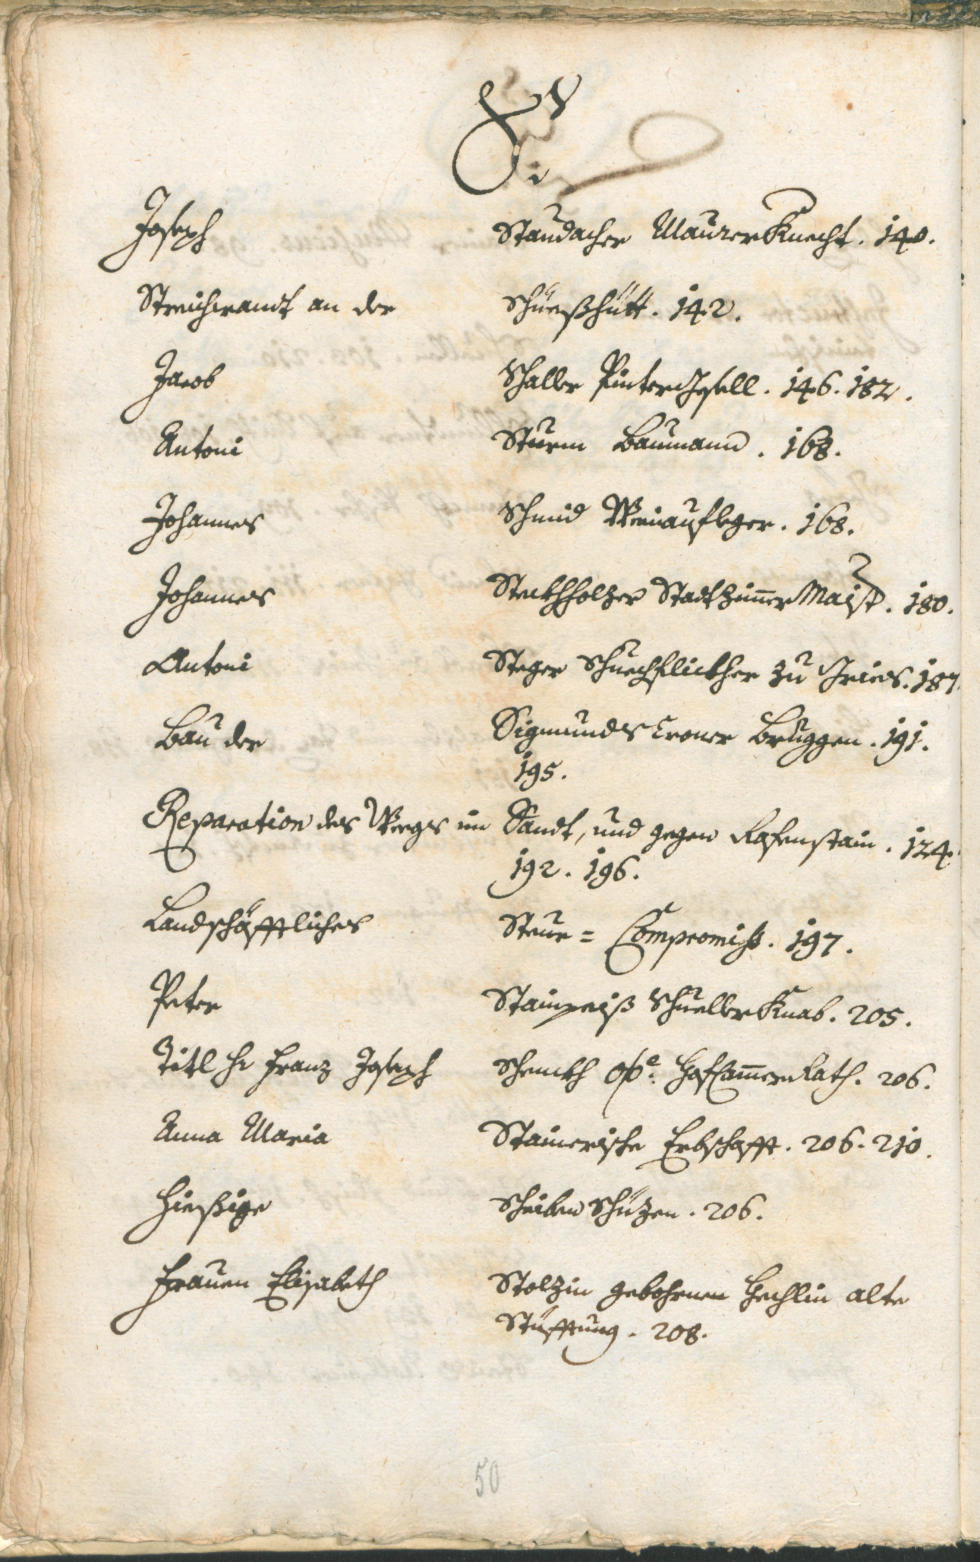 S.
Joseph Staudacher Maurer Knecht. 140.
Streichwandt an der Schüeßhütt. 142.
Jacob Schaller Pinter Gsell. 146. 182.
Antoni Sturm Baumann. 168.
Johannes Schmid Weinaufleger. 168.
Johannes Steckhholzer Stadtzimer Maist. 180.
Antoni Steger Schuechflickher zu Gries. 187.
Bau der Sigmundscroner Bruggen. 191.
195.
Reparation des Weegs im Sandt, und gegen Rafenstain. 124.
192. 196.
Landschäfftliches Steur= Compromiss. 197.
Peter Schueller Knab. 205.
Titl Hr Franz Joseph Schenckh HofCamerRath. 206.
Anna Maria Stainerische Erbschafft. 206. 210.
Hießige Scheiben Schüzen. 206.
Frauen Elisabeth Stolzin gebohrnen Hechlin alte
Stüfftung. 208.
50